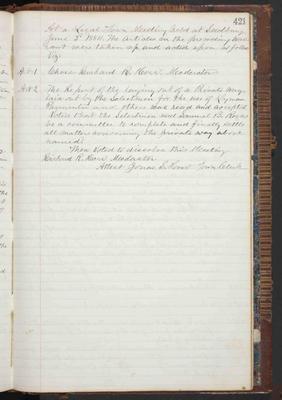 421
At a Legal Town Meeting held at Sudbury
June 3d 1880, The Articles in the preceding War-
rant were taken up and acted upon as follows
Viz:
Art 1 Chose Richard R. Moderator
Art 2 The Report of the laying out of a Private way
laid out by the Selectmen for the use of Lyman
and others was read and accepted
Voted that the Selectmen and Samuel B. Rogers
be a committee to complete and finally settle
all matters concerning the private way above
named:
Then Voted to dissolve this Meeting
Richard R. Moderator
Attest Jonas S. Hunt Town Clerk